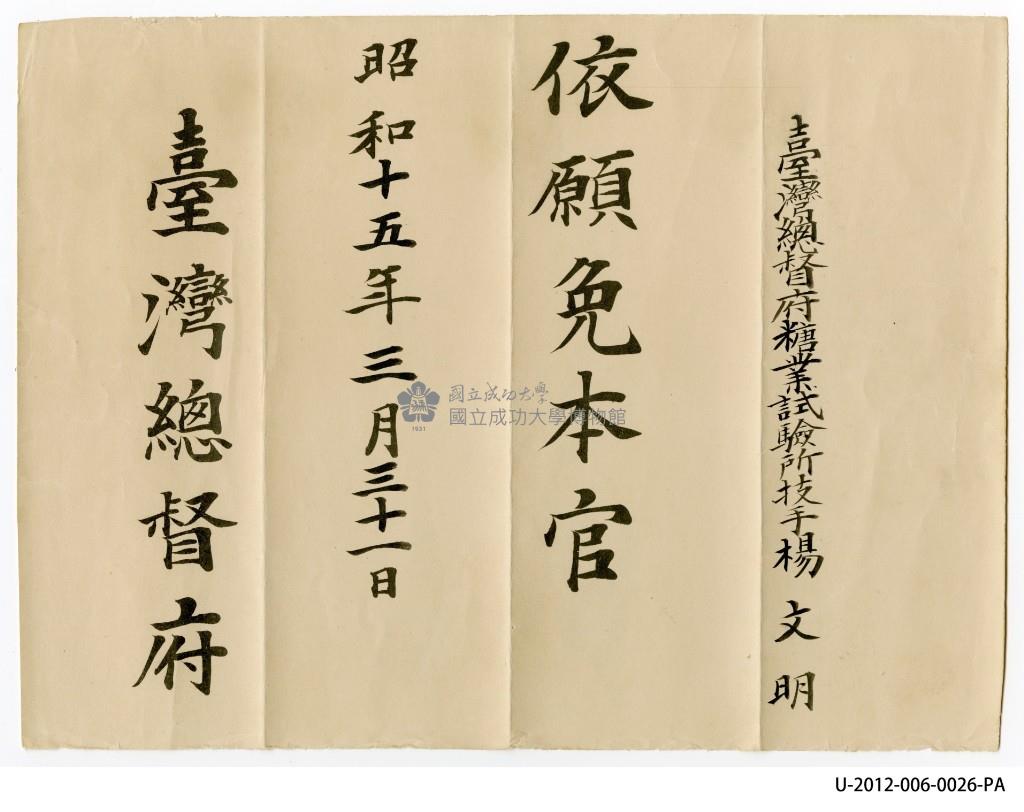 臺灣總督府糖業試驗所技手楊文明
依願免本官
昭和十五年三月三十一日
臺灣總督府
國立成功大學
國立成功大學博物館
1931
U-2012-006-0026-PA